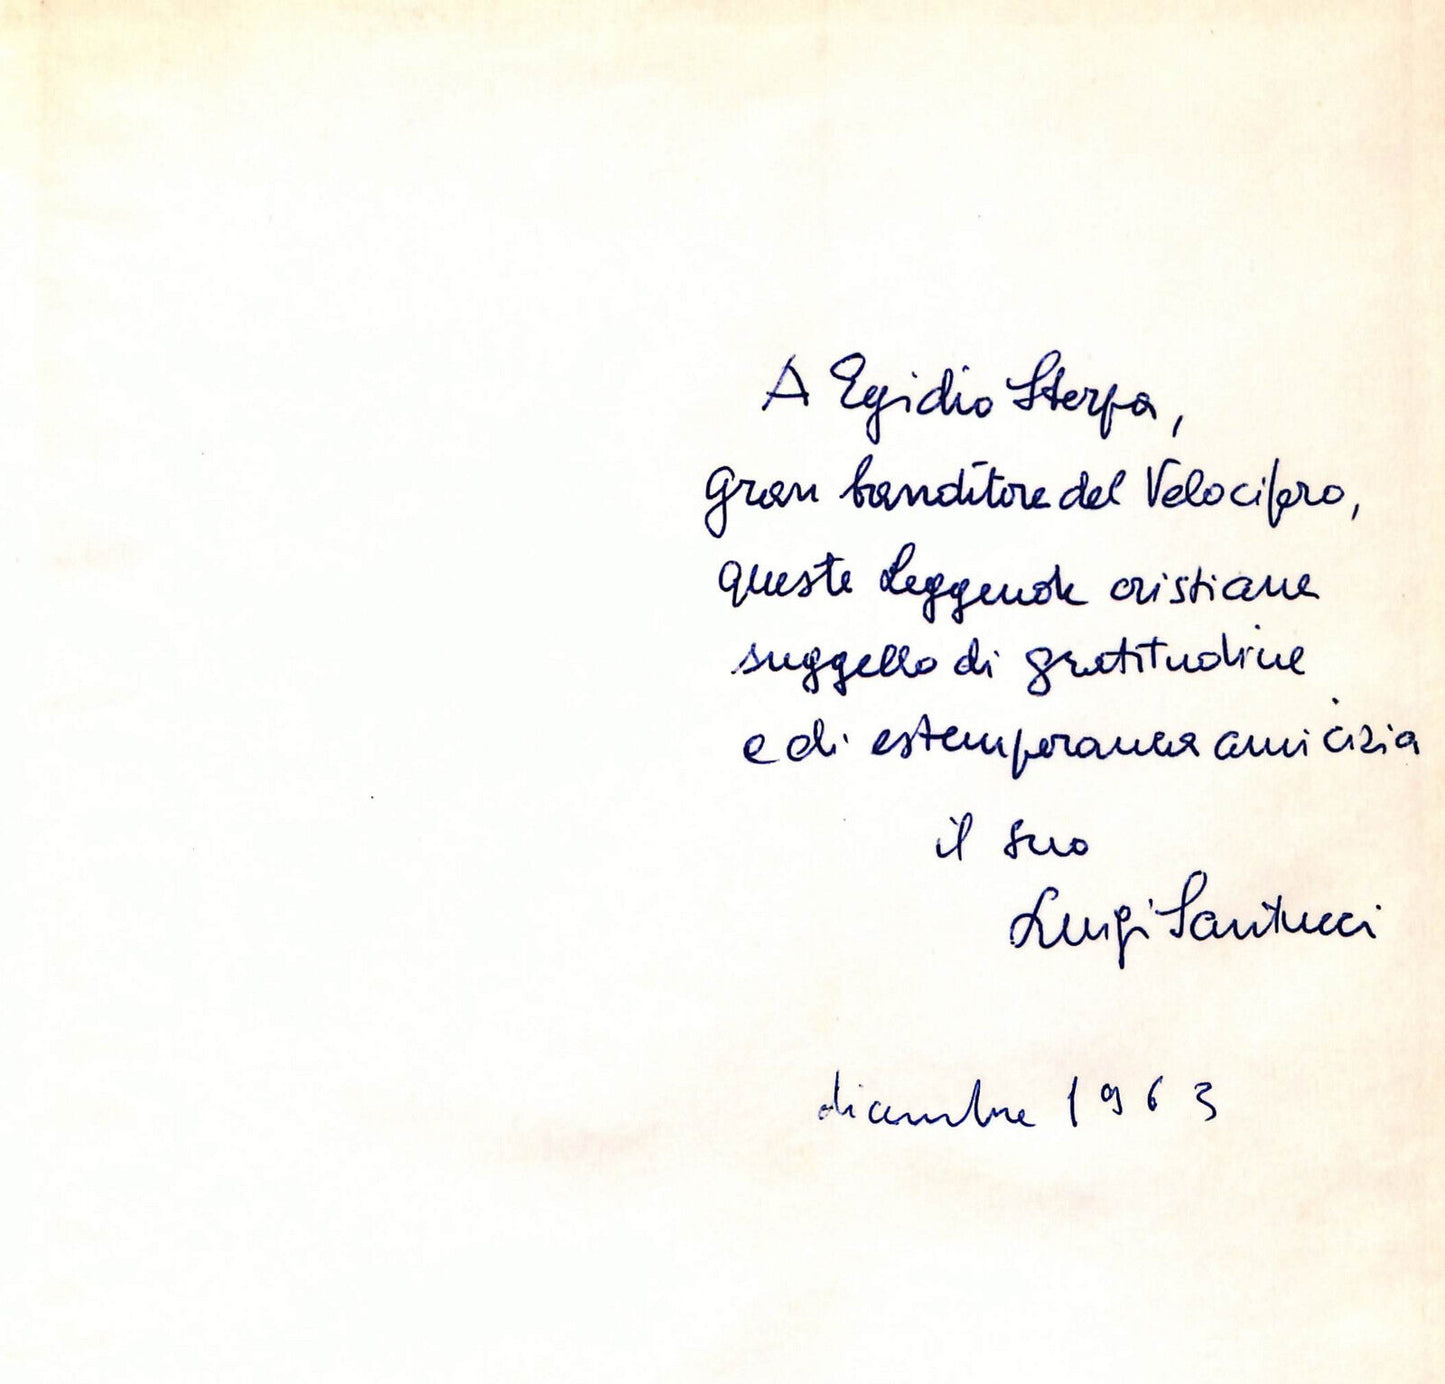 A Egidio Sterpa,
gran banditore del Velocifero,
queste Leggende cristiane
suggello di gratitudine
e di estemporanea amicizia
il suo
Luigi Santucci
dicembre 1963